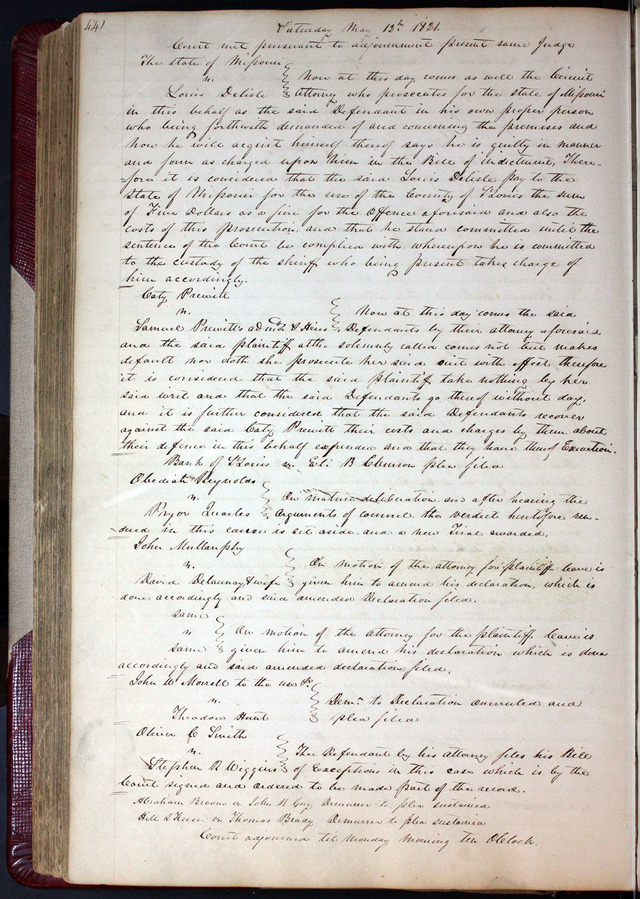 441
Saturday May 12th 1821.
Court met pursuant to adjournment present same Judge
The State of Missouri
vs. Now at this day comes as well the Circuit
Louis Delisle Attorney who prosecutes for the state of Missouri
in this behalf as the said Defendant in his own proper person
who being forthwith demanded of and concerning the premises and
how he will acquit himself thereof says he is guilty in manner
and form as charged upon him in the Bill of Indictment, There-
-fore it is considered that the said Louis Delisle pay to the
State of Missouri for the use of the County of St Louis the sum
of Five Dollars as a fine for the Offence aforesaid and also the
costs of this prosecution and that he stand committed until the
sentence of the Court be complied with whereupon he is committed
to the custody of the sheriff who being present takes charge of
him accordingly.
Caty Prewitt
vs. Now at this day comes the said
Samuel Prewitt's & Heirs Defendants by their attorney aforesaid
and the said plaintiff altho solemnly called comes not but makes
default nor doth she prosecute her said suit with effect therefore
it is considered that the said plaintiff take nothing by her
said writ and that the said Defendants go thereof without day,
and it is further considered that the said Defendants recover
against the said Caty Prewitt their costs and charges by them about
their defence in this behalf expended and that they have thereof Execution.
Bank of St Louis vs. Eli B Clemson plea filed
Obediah Reynolds
vs. On mature deliberation and after hearing the
Pryor Quarles arguments of counsel the verdict heretofore ren-
-dered in this cause is set aside and a new Trial awarded.
John Mullanphy
vs. On motion of the attorney for plaintiff leave is
David Delaunay & wife given him to amend his declaration, which is
done accordingly and said amended Declaration filed.
same
vs On motion of the attorney for the plaintiff leave is
same given him to amend his declaration which is done
accordingly and said amended declaration filed.
John W Morrell to the use &c
vs. Demr to Declaration overruled and
Theodore Hunt plea filed
Oliver C Smith
vs. The Defendant by his attorney files his Bill
Stephen R Wiggins of Exceptions in this case which is by the
Court signed and ordered to be made part of the record.
Abraham Brooms vs John R Guy Demurrer to plea sustained
Hill & vs Thomas Brady Demurrer to plea sustained
Court adjourned till Monday Morning Ten OClock.